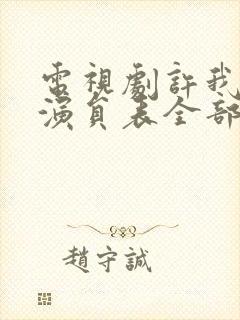 電視劇許我
演員表全部
趙守誠